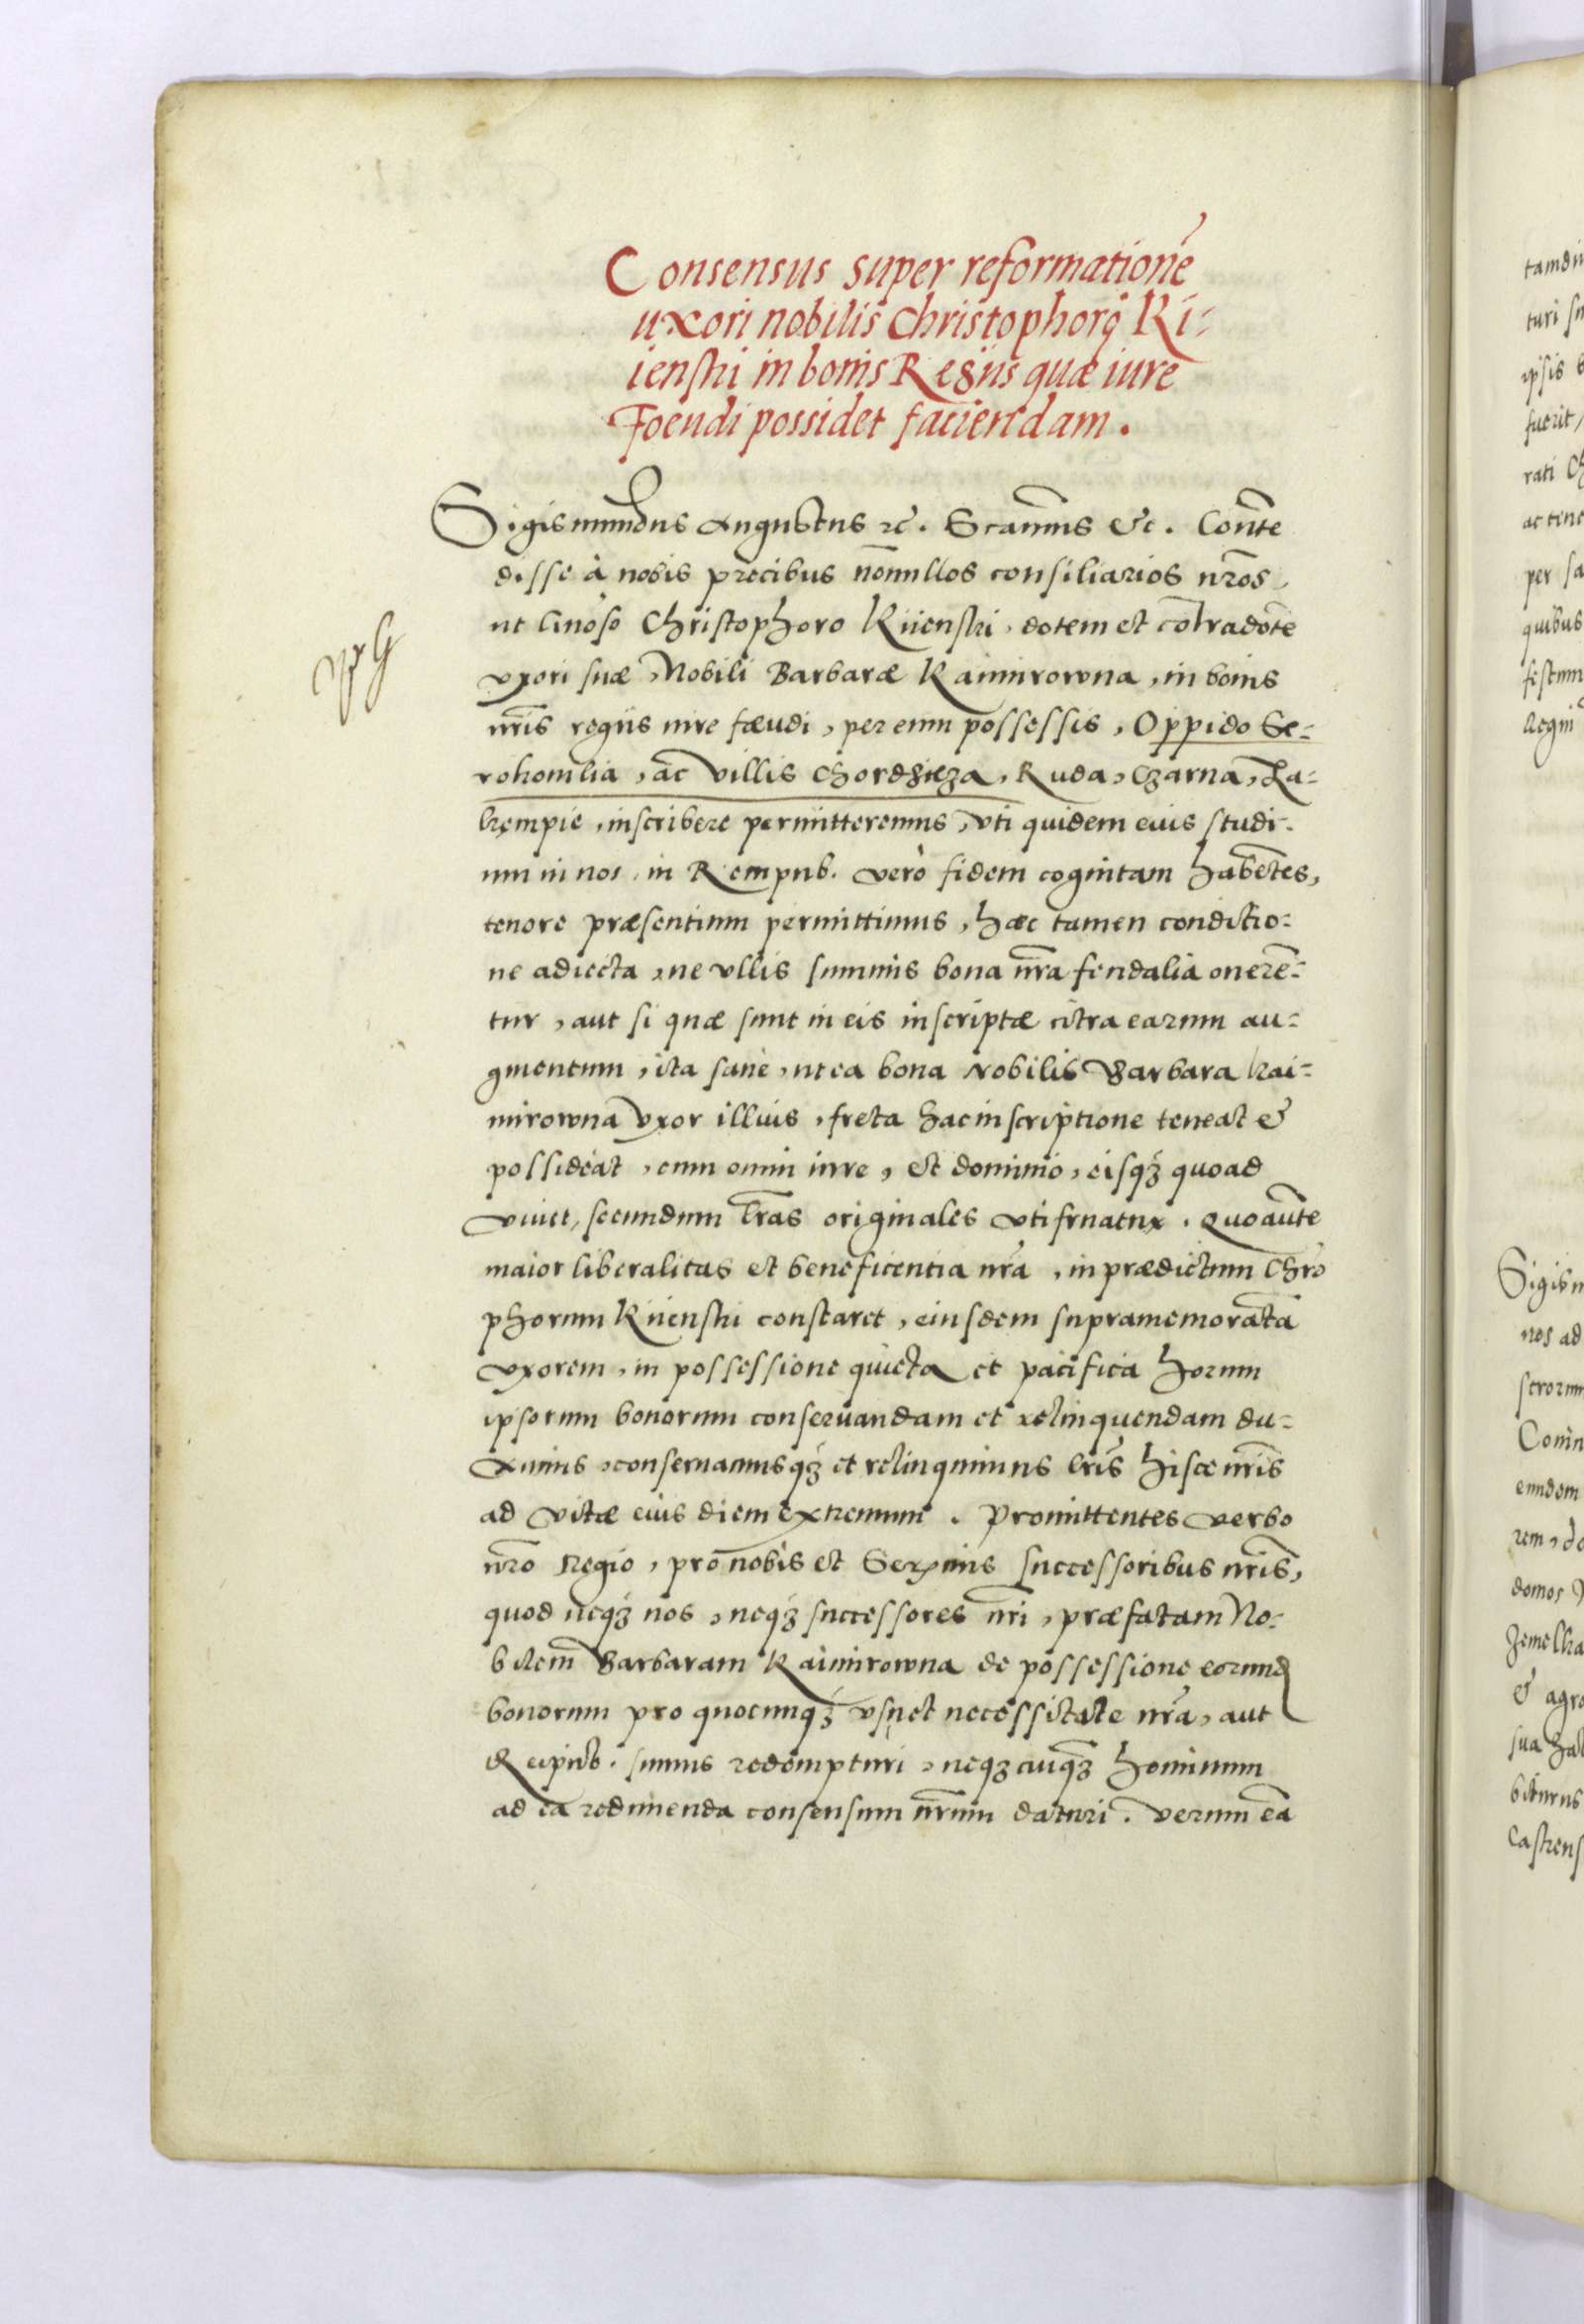 Consensus super reformationẽ
uxori nobilis Christophori Ki-
ienski in bonis Regiis quæ iure
Foeudi possidet faciendam.
Sigismundus Augustus etc. Scimus &c. Conte
disse à nobis precibus nōnullos consiliarios nr̄os,
ut Christophoro Kiienski, dotem et cōtradotē
uxori suæ, Nobili Barbaræ Kaimirowna, in bonis
nr̄is regiis iure fœudi, per eum possessis, Oppido Se-
rokomlia, ac villis Chordzieza, Ruda, Czarna, Za-
krzempie, inscribere permitteremus, vti quidem eius studi-
um in nos, in Rempub. verò fidem cognitam habētes,
tenore præsentium permittimus, hæc tamen conditio-
ne adiecta, ne vllis summis bona nr̄a feudalia onerē-
tur, aut si quæ sunt in eis inscriptæ citra earum au-
gmentum, ita sanè, ut ea bona nobilis Barbara Kai-
mirowna vxor illius, freta hac inscriptione teneat &
possideat, cum omni iure, et dominio, eisq3 quoad
viuet, secundum lr̄as originales vti fruatur. Quo aūte
maior liberalitas et beneficentia nr̄a, in prædictum Chr̄o
phorum Kiienski constaret, eiusdem supramemoratā
vxorem, in possessione quieta et pacifica horum
ipsorum bonorum conseruandam et relinquendam du-
ximus, conseruamusq3 et relinquimus lr̄is hisce nr̄is
ad vitæ eius diem extremum. Promittentes verbo
nr̄o Regio, pro nobis et Serx̄mis successoribus nr̄is,
quod neq3 nos, neq3 successores nr̄i, præfatam No-
bilem Barbaram Kaimirowna de possessione eorund
bonorum pro quocunq3 vsu et necessitate nr̄a, aut
Reipub. sumus redempturi, neq3 cuiq3 hominum
ad ea redimenda consensum nr̄um daturi. Verum eā